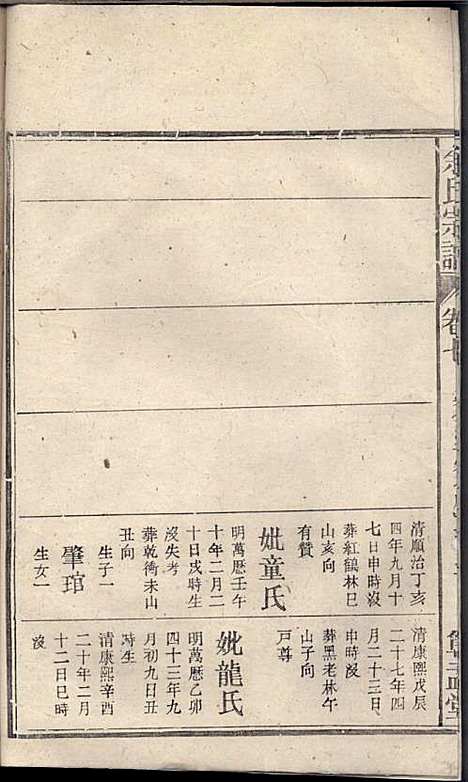 氏宗譜
卷七
清順治丁亥
四年九月十
七日申時沒
葬紅鶴林巳
山亥向
有贊
妣童氏
明萬歷壬午
十年二月二
十日戌時生
沒失考
葬乾衕未山
丑向
生子一
肇琯
生女一
清康熙戊辰
二十七年四
月二十三日
申時沒
葬黑老林午
山子向
戸尊
妣龍氏
明萬歷乙卯
四十三年九
月初九日丑
時生
清康熙辛酉
二十年二月
十二日巳時
沒